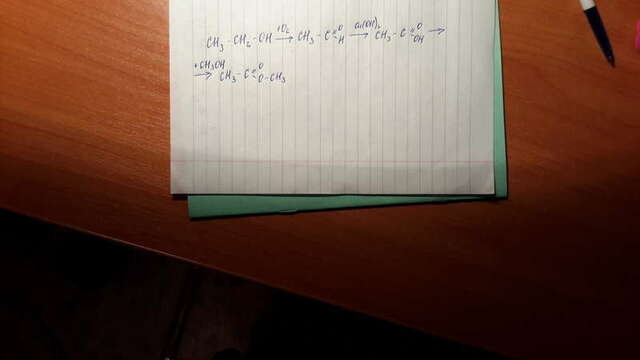 CH₃-CH₂-OH +O₂→ CH₃-C=O-H Cu(OH)₂→ CH₃-C=O-OH →
+CH₃OH→ CH₃-C=O-O-CH₃